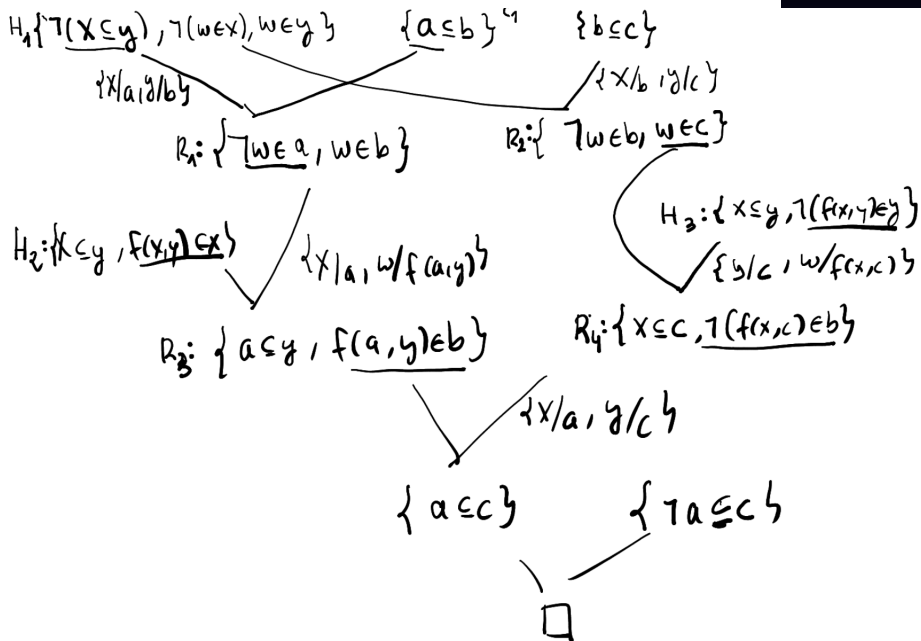 H₁{¬(x⊆y), ¬(w∈x), w∈y} {a⊆b} {b⊆c}
{x/a, y/b} {x/b, y/c}
R₁: {¬w∈a, w∈b} R₂: {¬w∈b, w∈c}
H₃: {x⊆y, ¬(f(x,y)∈y}
H₂: {x⊆y, f(x,y)∈x} {x/a, w/f(a,y)} {y/c, w/f(x,c)}
R₃: {a⊆y, f(a,y)∈b} R₄: {x⊆c, ¬(f(x,c)∈b}
{x/a, y/c}
{a⊆c} {¬a⊆c}
□